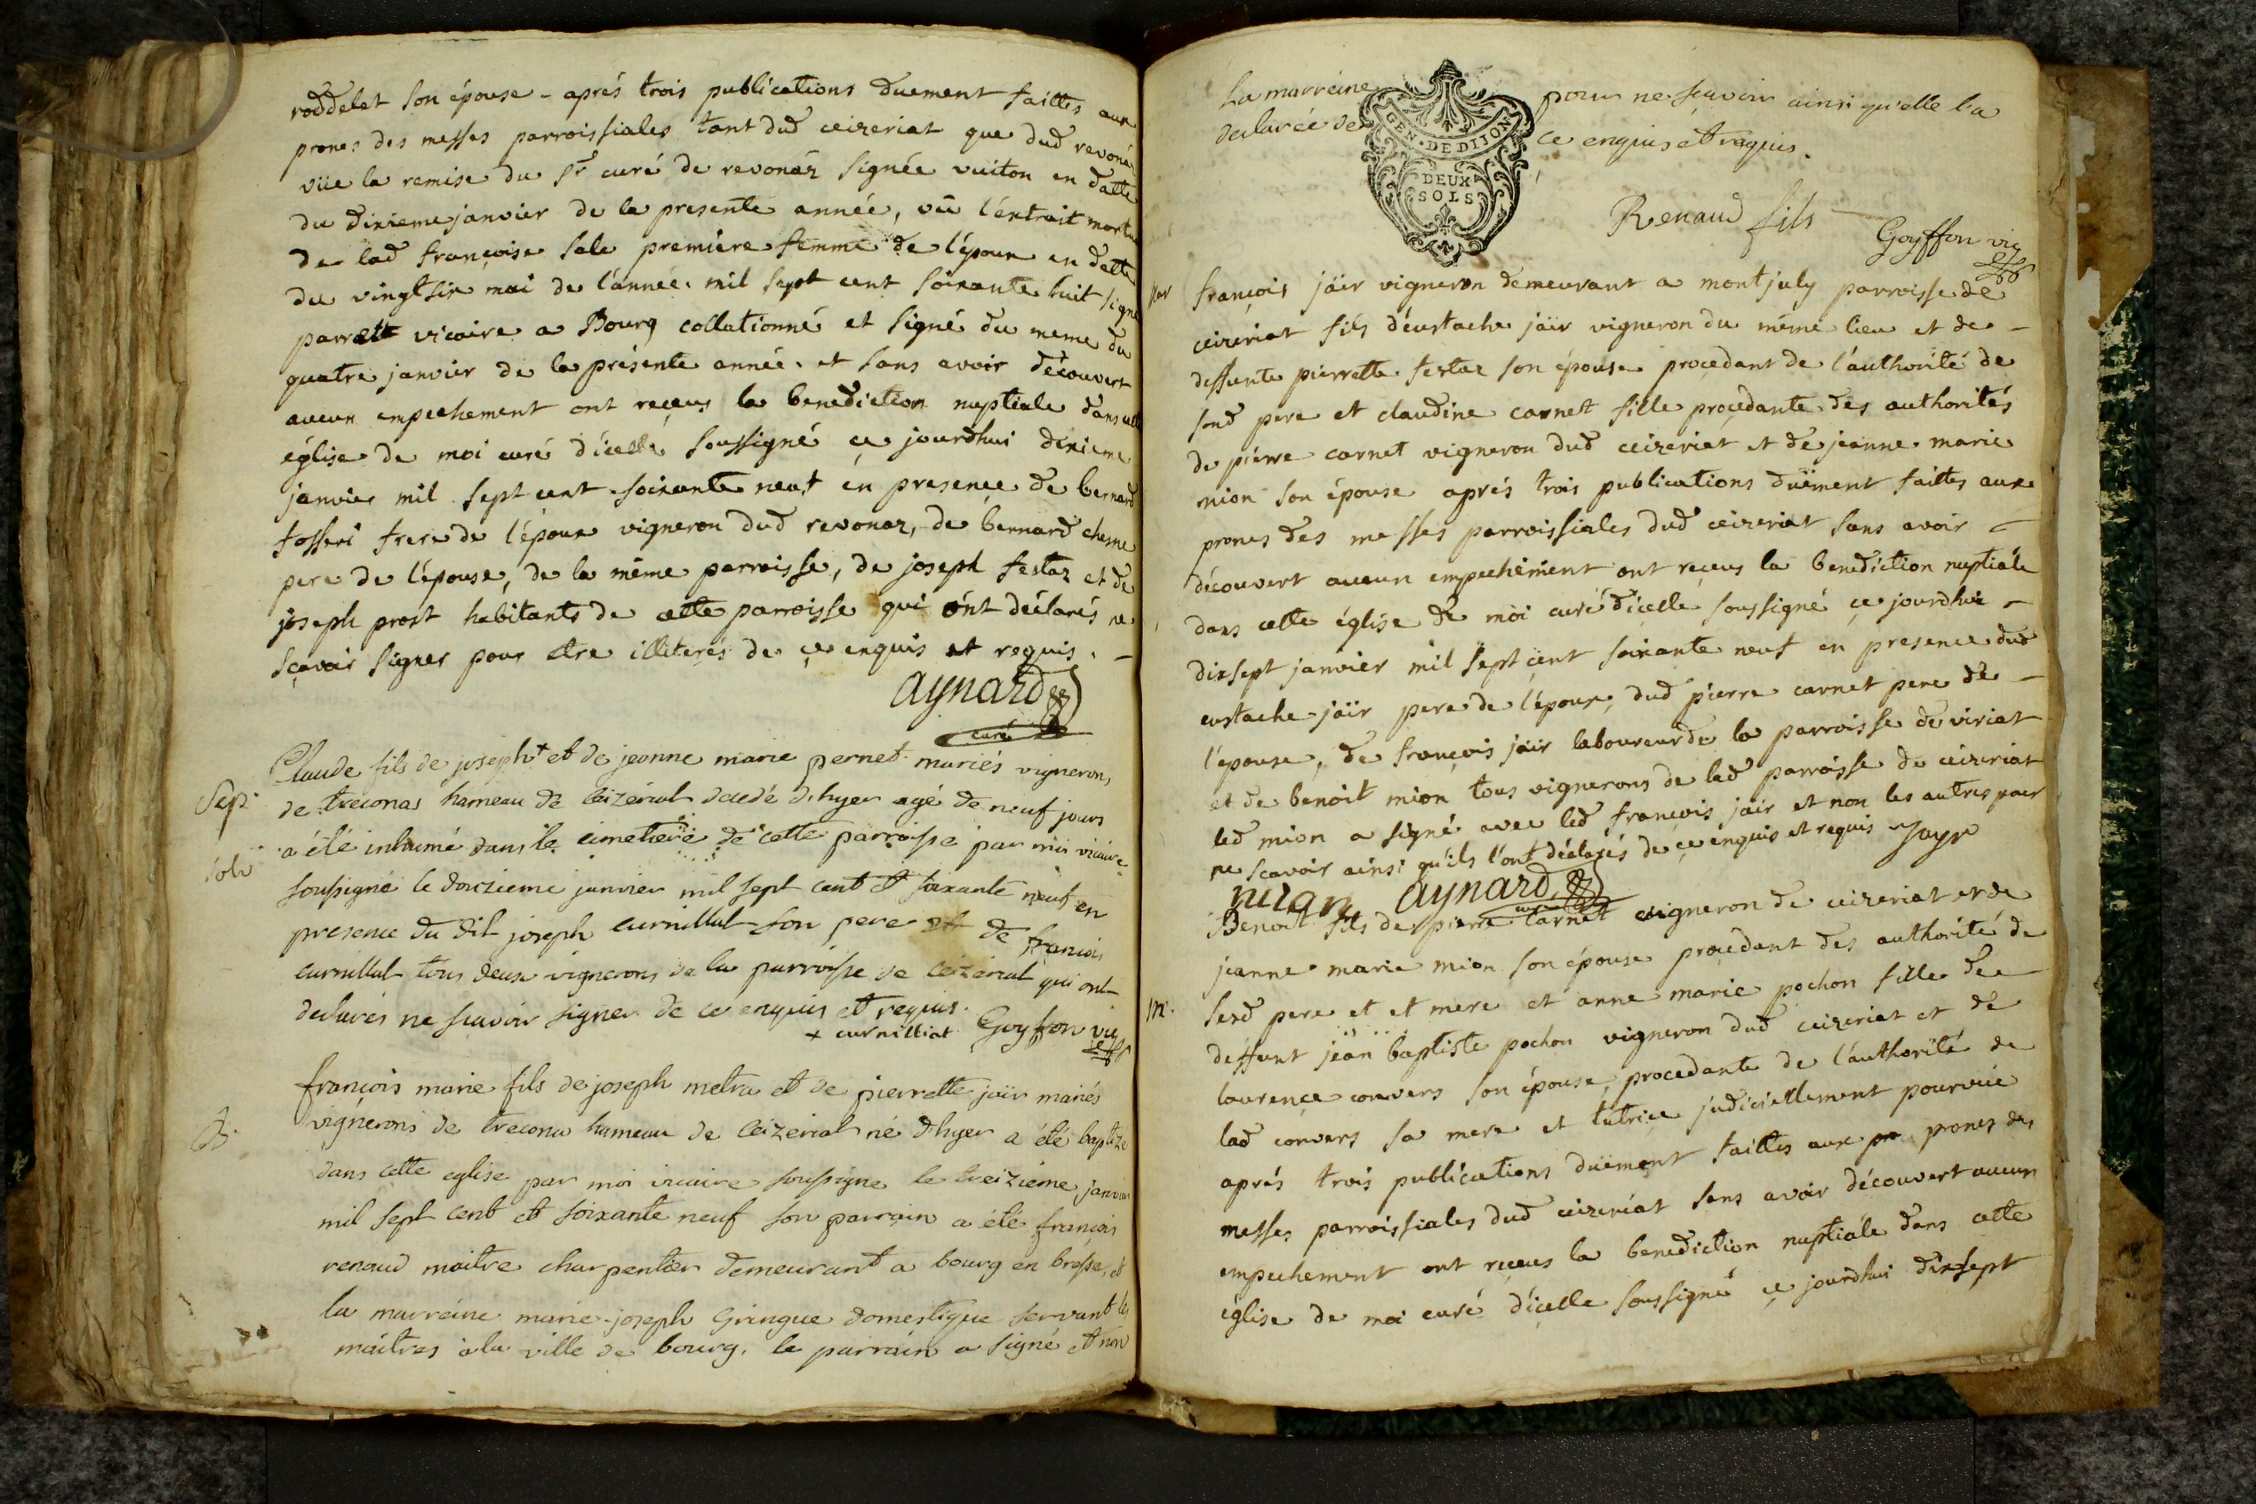 roddelet son épouse - aprés trois publications duement faittes aux
prones des messes parroissiales tant dud ceizeriat que dud revonéz
vüe la remise du Sr curé de revonéz signée vuiton en datte
du dixieme janvier de la presente année, vû l'éxtrait mortu
de lad françoise sele premiere femme de l'époux en datte
du vingtsix mai de l'année mil sept cent soixante huit signé
parrett vicaire a Bourg collationné et signé du meme du
quatre janvier de la présente année. et sans avoir découvert
aucun empechement ont reçeus la benediction nuptiale dans cette
église de moi curé d'icelle soussigné ce jourdhui dixieme
janvier mil sept cent soixante neuf en presence de bernard
fosseri frere de l'époux vigneron dud revonaz, de bernard chesne
pere de l'épouse, de la même parroisse, de joseph festaz et de
joseph prost habitants de cette parroisse qui ont déclarés ne
sçavoir signer pour etre illiterés de ce enquis et requis. -
aynard
curé
Claude fils de joseph + et de jeanne marie pernet mariés vigneron,
Sep.
de treconas hameau de Ceizériat decedé d'hyer agé de neuf jours
a été inhumé dans le cimetiere de cette parroisse par moi vicaire
solv
soussigné le douzieme janvier mil sept cent et soixante neuf en
presence du dit joseph curnillat son pere et de françois
curnillat tous deux vignerons de la parroisse de Ceizériat qui ont
declarés ne sçavoir signer de ce enquis et requis.
+ curnilliat Goyffon vic
françois marie fils de joseph metra et de pierrette jaïr mariés
B.
vignérons de trecona hameau de Ceizeriat né d'hyer a été baptizé
dans cette eglise par moi vicaire soussigné le treizième janvier
mil sept cent et soixante neuf son parrain a été françois
renaud maitre charpentier demeurant a bourg en bresse, et
la marréine marie joseph Gringue domestique servant les
maitres a la ville de bourg. le parrain a signé et non
La marréine pour ne sçavoir ainsi qu'elle l'a
declarée de ce enquis et requis.
GEN. DE DIJON
DEUX
SOLS
Renaud fils
Goyffon vic
françois jäir vigneron demeurant a montjuly parroisse de
ceizériat fils d'éustache jaïr vigneron du même lieu et de -
deffunte pierrette festaz son épouse proçedant de l'authorité de
sond pere et claudine carnet fille proçedante des authorités
de piérre carnet vigneron dud ceizeriat et de jeanne marie
mion son épouse aprés trois publications duëment faittes aux
prones des messes parroissiales dud ceizeriat sans avoir -
découvert aucun empechement ont reçeus la benediction nuptiale
dans cette église de moi curé d'icelle soussigné ce jourdhui -
dixsept janvier mil sept cent soixante neuf en presence dud
eustache jaïr pere de l'époux, dud pierre carnet pere de -
l'épouse, de françois jäir laboureur de la parroisse de viriat
et de benoit mion tous vignerons de lad parroisse de ceizeriat
led mion a signé avec led françois jäir et non les autres pour
ne scavoir ainsi qu'ils l'ont déclarés de ce énquis et requis Jayr
mion aynard
curé
Benoit fils de pierre Carnet vigneron de ceizeriat et de
jeanne marie mion son épouse proçedant des authorité de
m.
sesd pere et et mere et anne marie pochon fille de
deffunt jean baptiste pochon vigneron dud ceizeriat et de
laurençe convers son épouse, proçedante de l'authorité de
lad convers sa mere et tutriçe judiciellement pourvüe
aprés trois publications duëment faittes aux pr prones des
messes parroissiales dud ceizeriat sans avoir découvert aucun
empechement ont reçeus la benediction nuptiale dans cette
église de moi curé d'icelle soussigné ce jourdhui dixsept